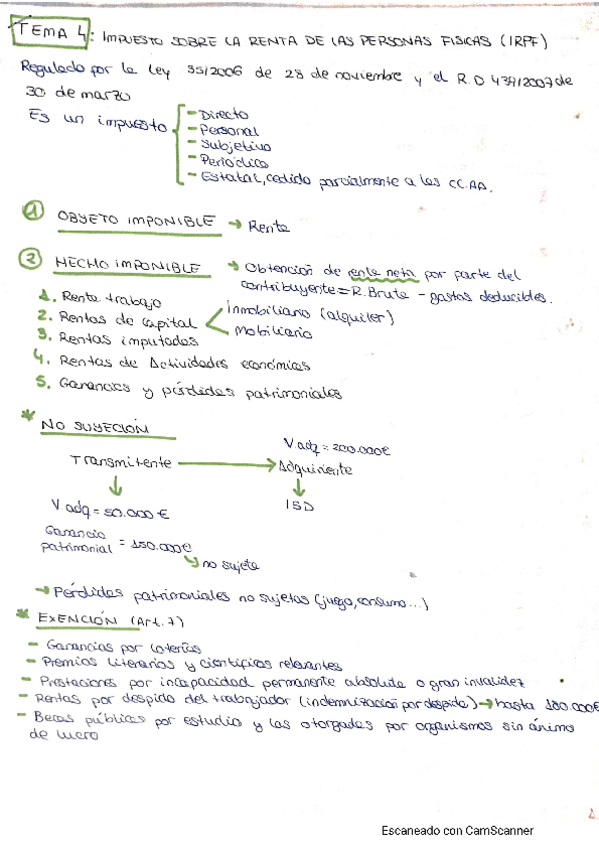 TEMA 4: IMPUESTO SOBRE LA RENTA DE LAS PERSONAS FISICAS (IRPF)
Regulado por la Ley 35/2006 de 28 de noviembre y el R.D 439/2007 de
30 de marzo
Es un impuesto
- Directo
- Personal
- Subjetivo
- Periódico
- Estatal, cedido parcialmente a las CC.AA.
1 OBJETO IMPONIBLE → Renta
2 HECHO IMPONIBLE → Obtención de renta neta por parte del
contribuyente = R.Bruta - gastos deducibles.
1. Renta trabajo
2. Rentas de capital
Inmobiliario (alquiler)
Mobiliario
3. Rentas imputadas
4. Rentas de Actividades económicas
5. Ganancias y pérdidas patrimoniales
* NO SUJECIÓN
V adq = 200.000€
Transmitente → Adquiriente
V adq = 50.000€
ISD
Ganancia
patrimonial = 150.000€
no sujeta
→ Pérdidas patrimoniales no sujetas (juego, consumo...)
* EXENCIÓN (Art. 7)
- Ganancias por loterías
- Premios literarios y científicos relevantes
- Prestaciones por incapacidad permanente absoluta o gran invalidez
- Rentas por despido del trabajador (indemnización por despido) → hasta 180.000€
- Becas públicas por estudio y las otorgadas por organismos sin ánimo
de lucro
Escaneado con CamScanner